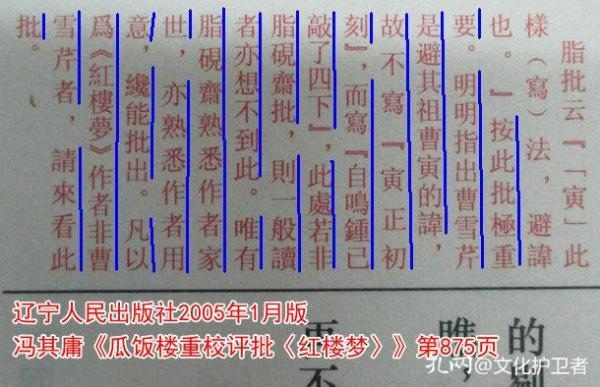 脂批云『「寅」此
樣（寫）法，避諱
也。』按此批極重
要。明明指出曹雪芹
是避其祖曹寅的諱，
故不寫『寅正初
刻』，而寫『自鳴鍾已
敲了四下』，此處若非
脂硯齋批，則一般讀
者亦想不到此。唯有
脂硯齋熟悉作者家
世，亦熟悉作者用
意，纔能批出。凡以
爲《紅樓夢》作者非曹
雪芹者，請來看此
批。
辽宁人民出版社2005年1月版
冯其庸《瓜饭楼重校评批〈红楼梦〉》第875页
的
瞧，
不
孔网@文化护卫者